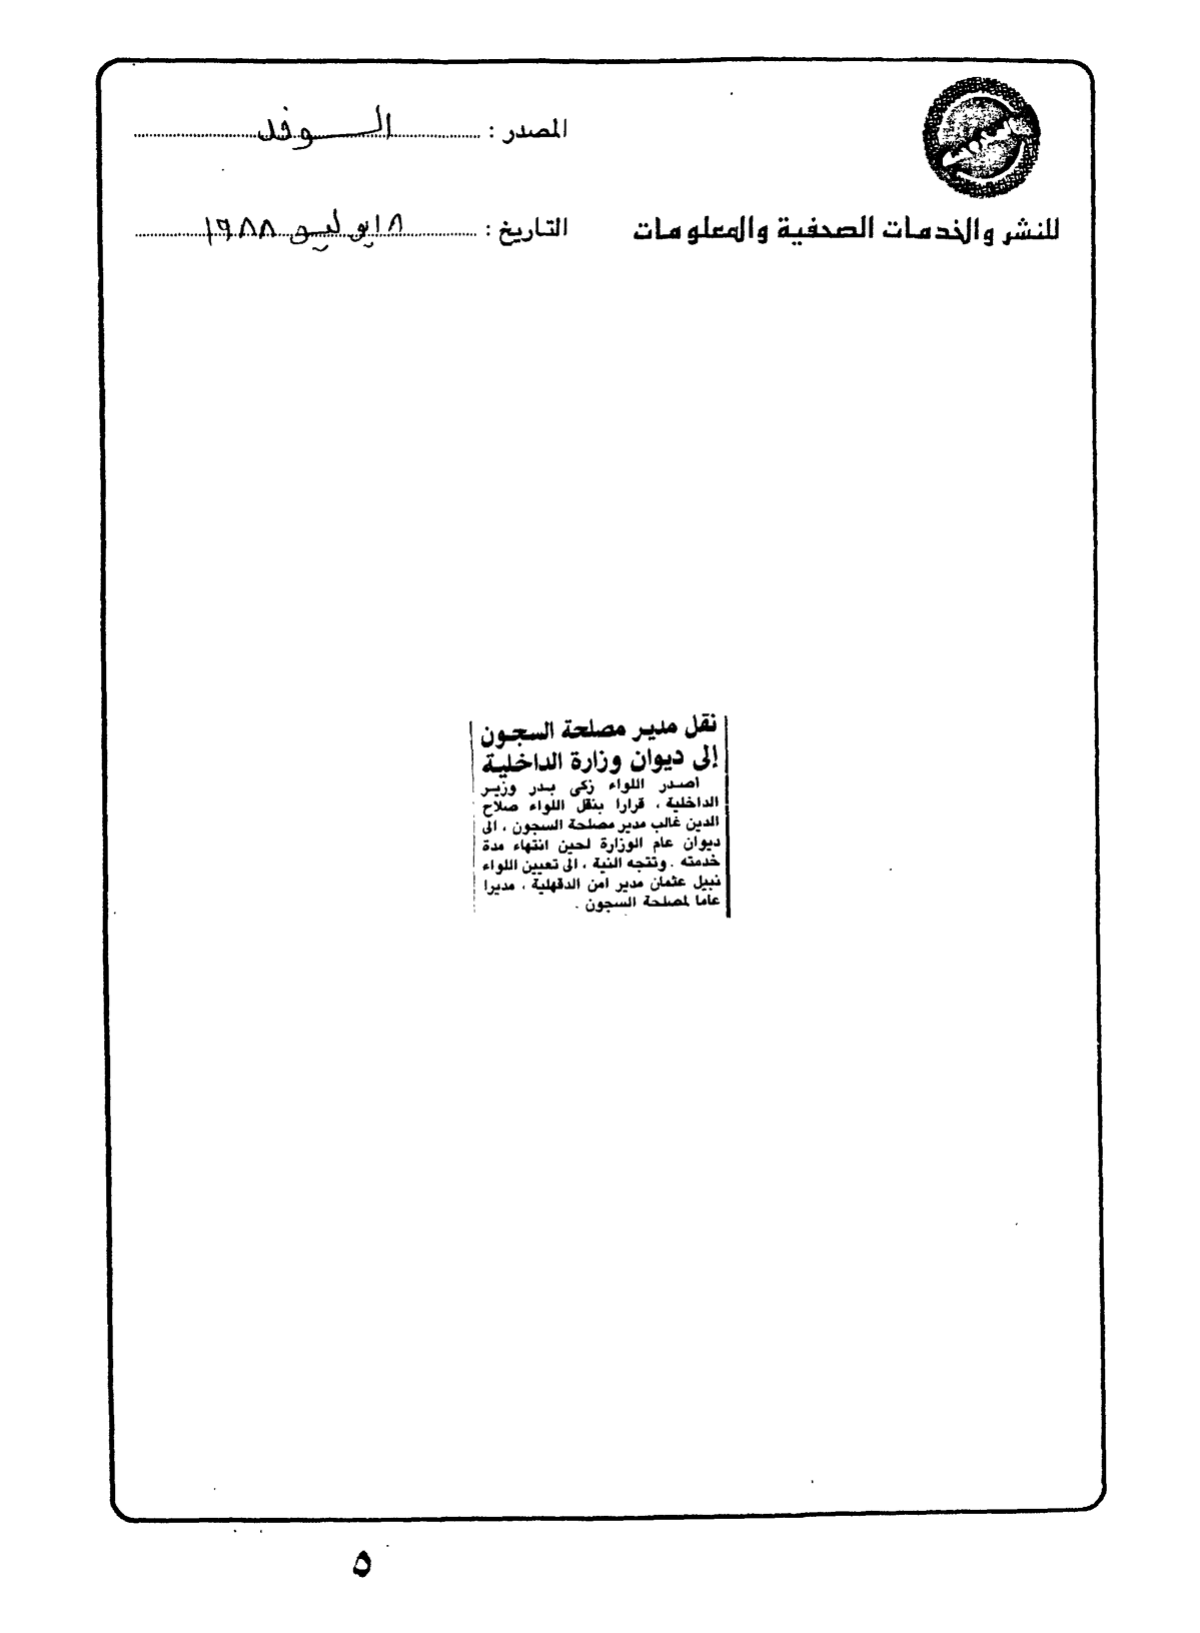 المصدر : الوفد
للنشر والخدمات الصحفية والمعلومات
التاريخ : ١٨ يوليو ١٩٨٨
نقل مدير مصلحة السجون
إلى ديوان وزارة الداخلية
اصدر اللواء زكى بدر وزير
الداخلية ، قرارا بنقل اللواء صلاح
الدين غالب مدير مصلحة السجون ، الى
ديوان عام الوزارة لحين انتهاء مدة
خدمته . وتتجه النية ، الى تعيين اللواء
نبيل عثمان مدير امن الدقهلية ، مديرا
عاما لمصلحة السجون .
٥